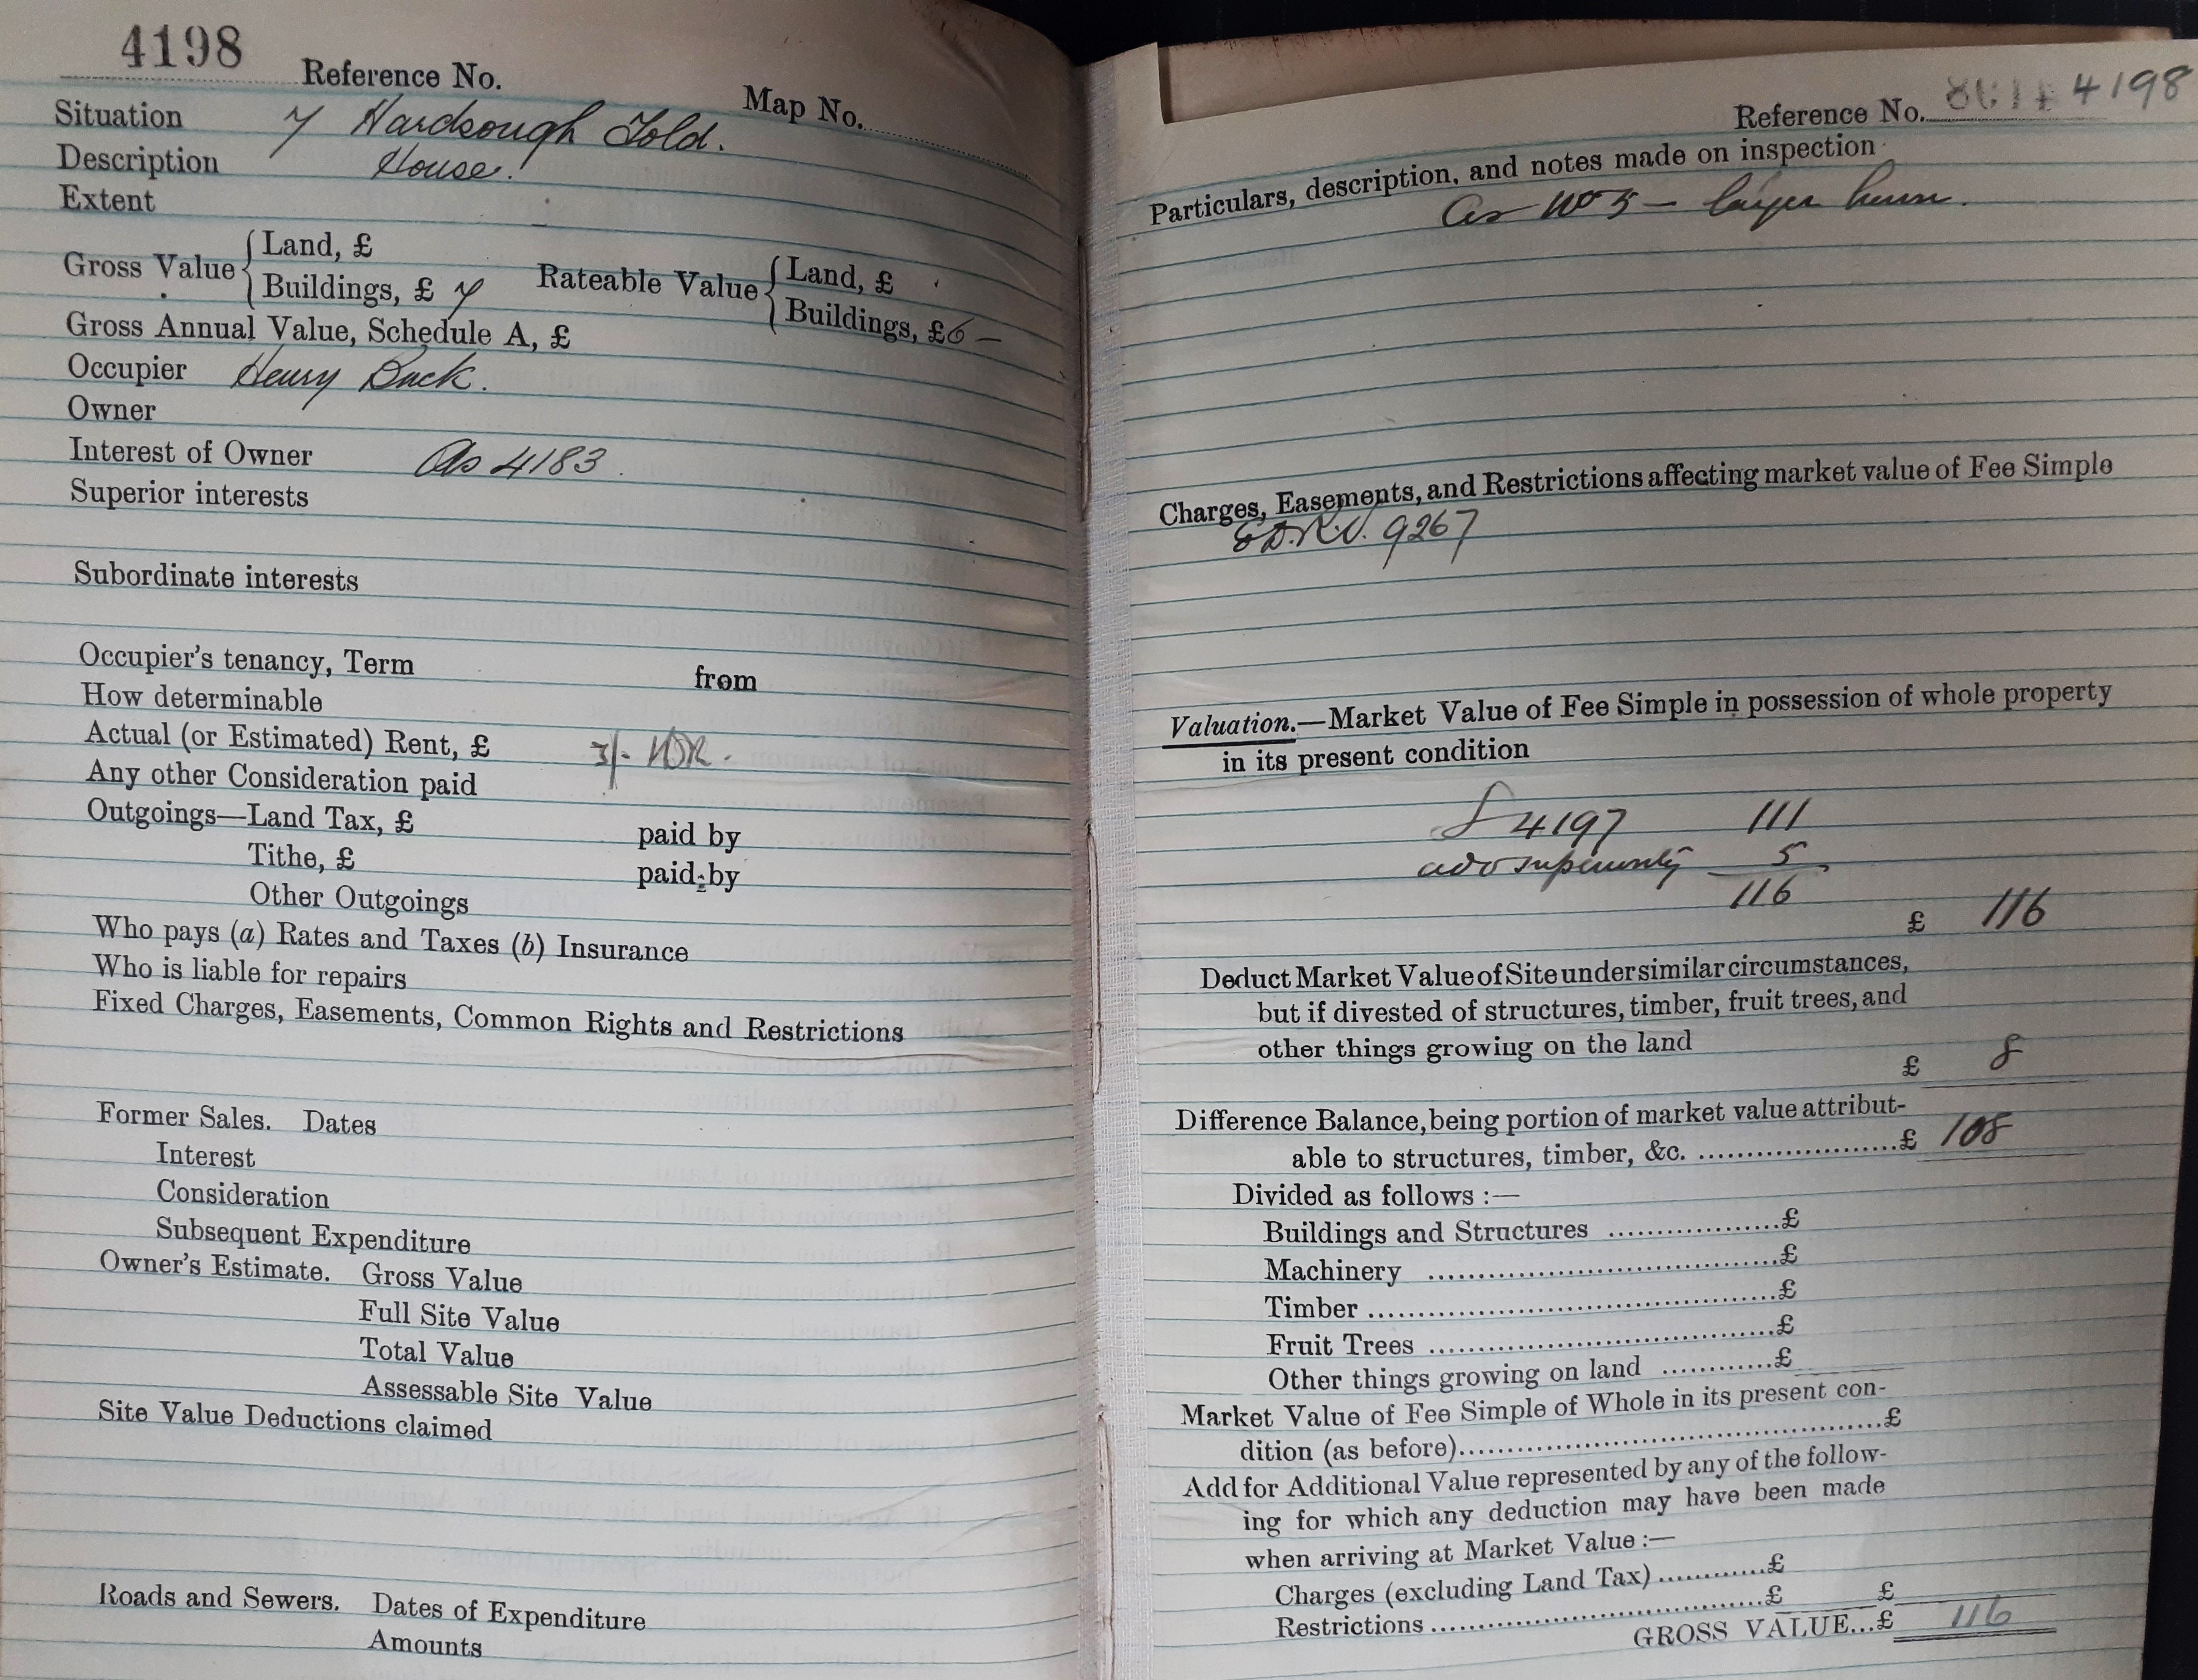 4198 Reference No.
Map No.
Situation 7 Hardsough Fold.
Description House.
Extent
Gross Value { Land, £
Buildings, £ 7
Rateable Value { Land, £
Buildings, £6 –
Gross Annual Value, Schedule A, £
Occupier Henry Buck.
Owner
Interest of Owner As 4183.
Superior interests
Subordinate interests
Occupier's tenancy, Term from
How determinable
Actual (or Estimated) Rent, £ 3/-
Any other Consideration paid
Outgoings—Land Tax, £ paid by
Tithe, £ paid by
Other Outgoings
Who pays (a) Rates and Taxes (b) Insurance
Who is liable for repairs
Fixed Charges, Easements, Common Rights and Restrictions
Former Sales. Dates
Interest
Consideration
Subsequent Expenditure
Owner's Estimate. Gross Value
Full Site Value
Total Value
Assessable Site Value
Site Value Deductions claimed
Roads and Sewers. Dates of Expenditure
Amounts
Reference No. 4198
Particulars, description, and notes made on inspection
As No 5 – larger house.
Charges, Easements, and Restrictions affecting market value of Fee Simple
E.D.R.V. 9267
Valuation.—Market Value of Fee Simple in possession of whole property
in its present condition
4197 111
add superiority 5
116
£ 116
Deduct Market Value of Site under similar circumstances,
but if divested of structures, timber, fruit trees, and
other things growing on the land
£ 8
Difference Balance, being portion of market value attribut-
able to structures, timber, &c. ....................£ 108
Divided as follows :—
Buildings and Structures .................£
Machinery ....................................£
Timber ..........................................£
Fruit Trees ....................................£
Other things growing on land ...........£
Market Value of Fee Simple of Whole in its present con-
dition (as before)...........................................£
Add for Additional Value represented by any of the follow-
ing for which any deduction may have been made
when arriving at Market Value :—
Charges (excluding Land Tax) ............£
Restrictions ....................................£ £
GROSS VALUE...£ 116